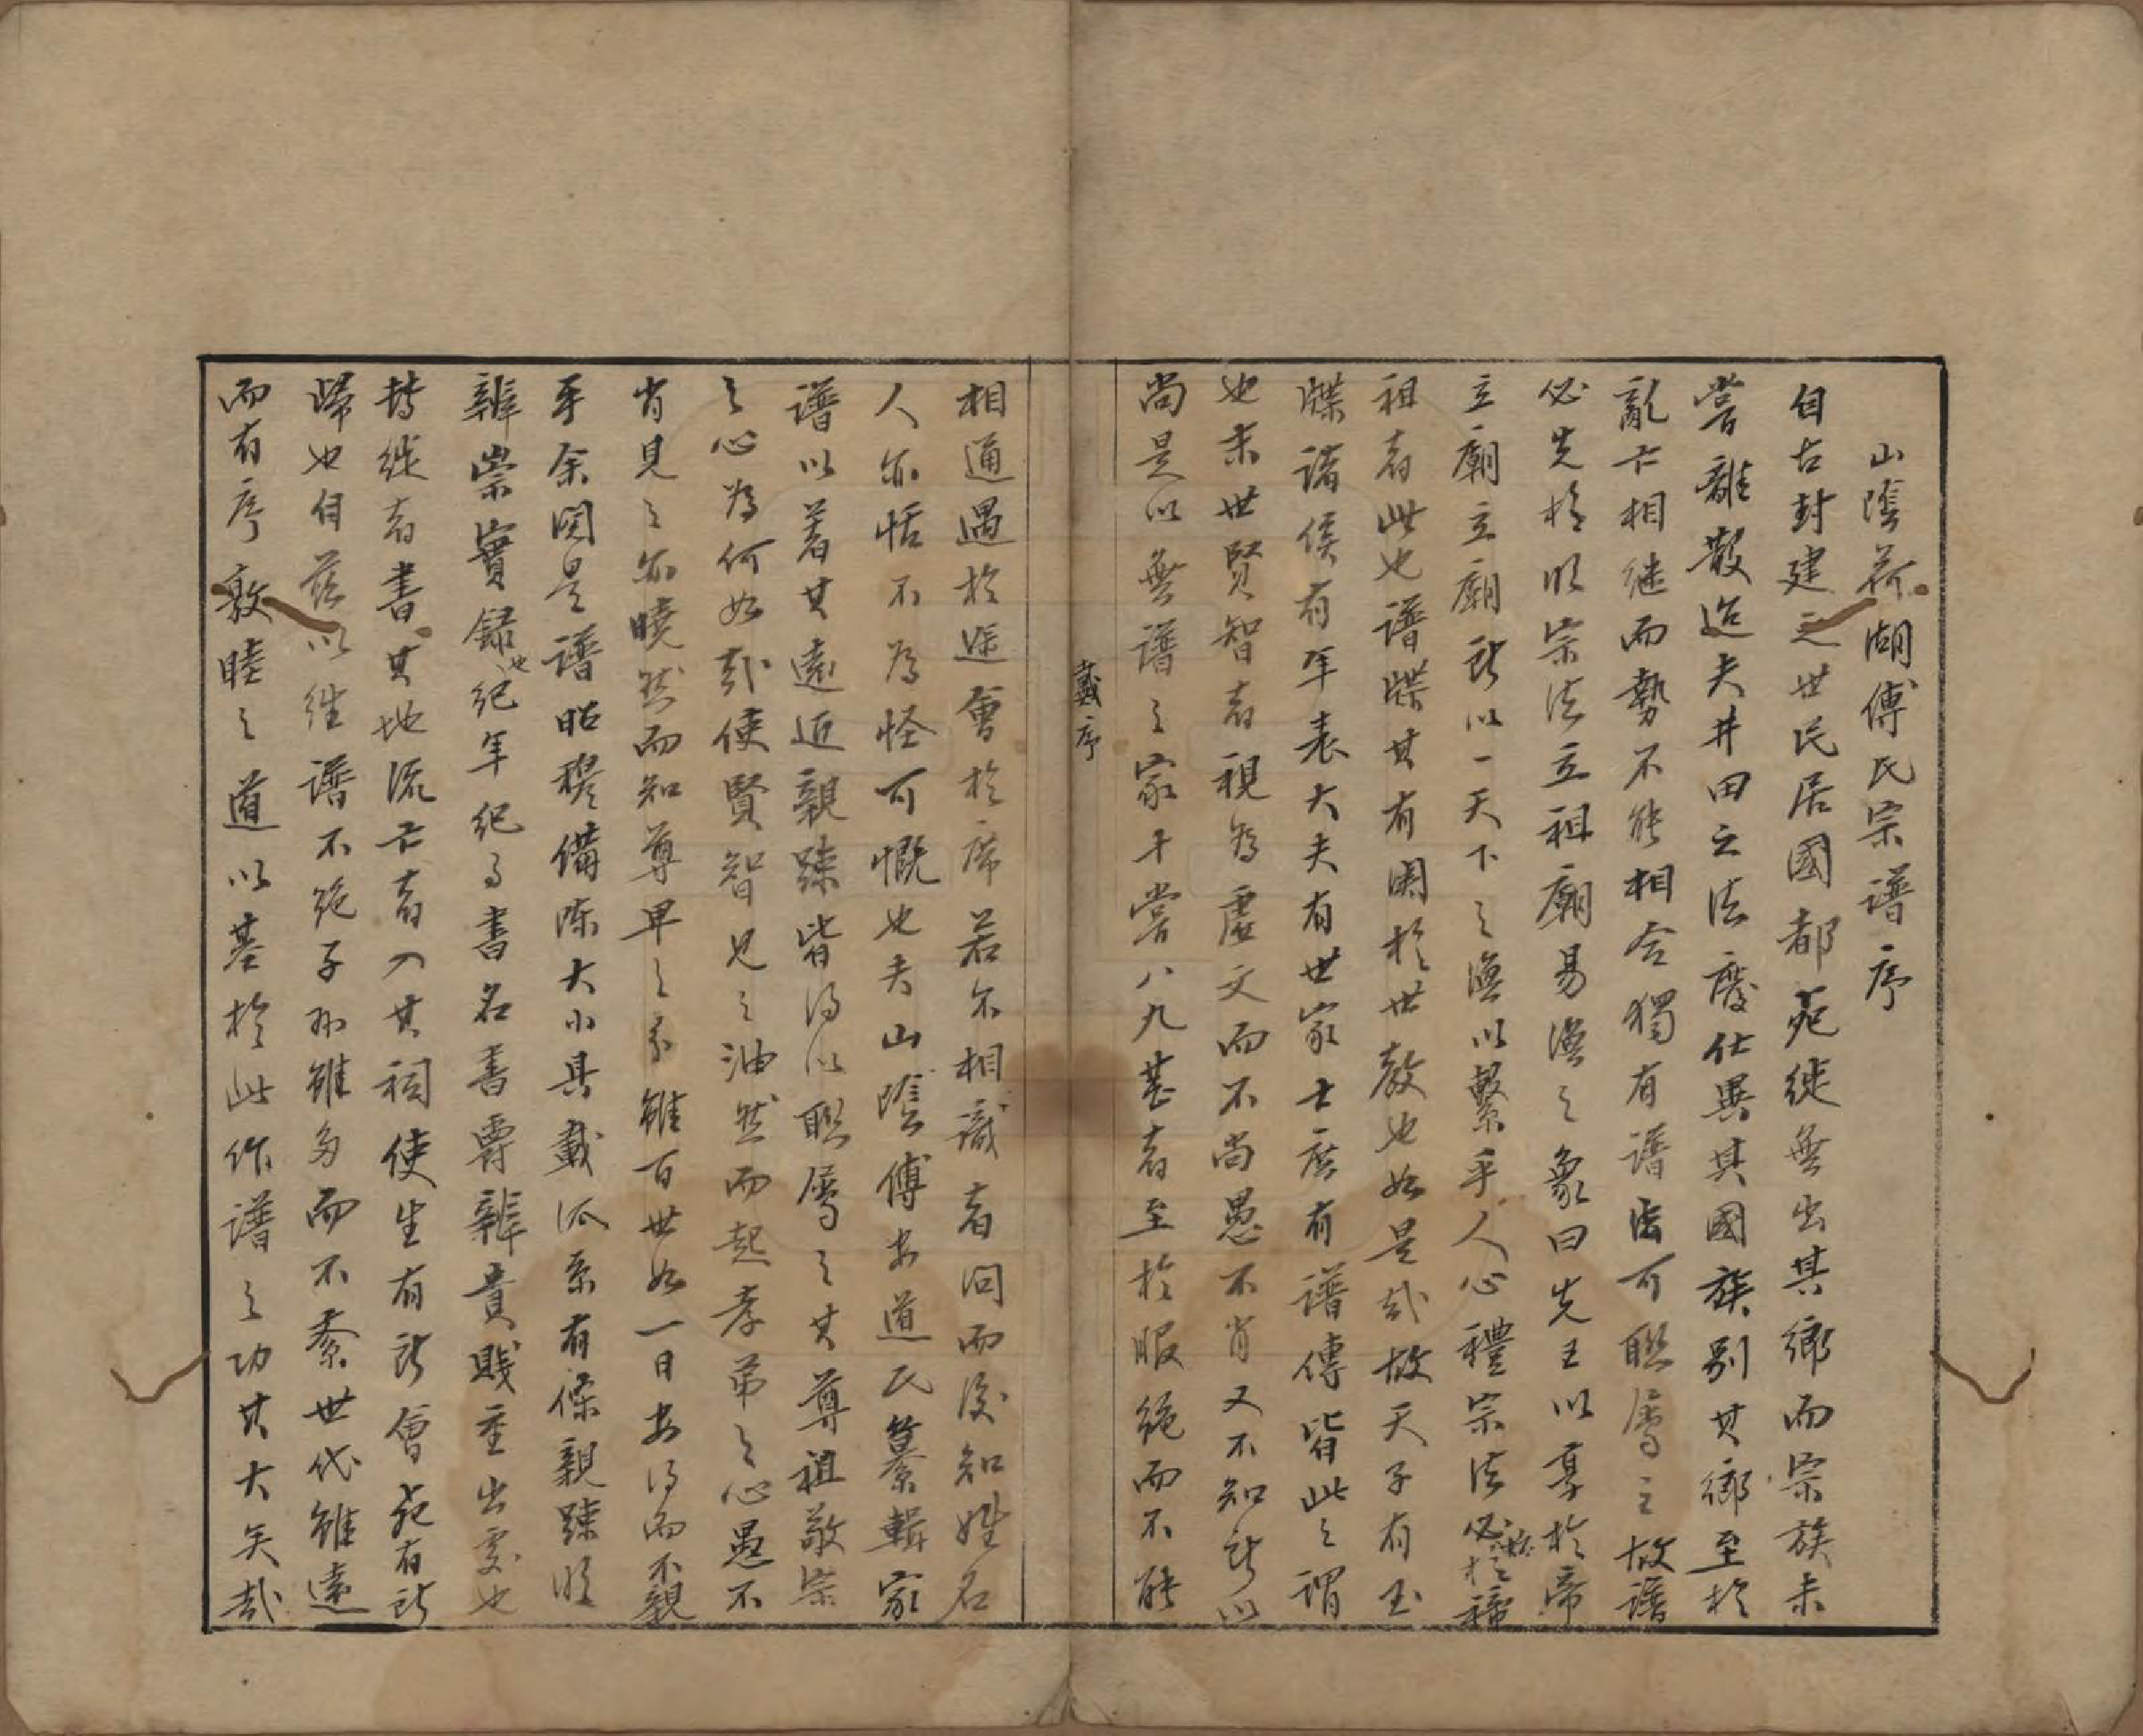 山隂荷湖傅氏宗譜序
自古封建之世民居國都死徙無出其鄉而宗族未
嘗離散迨夫井田之法廢仕異其國族别其鄉至於
亂亡相继而勢不能相合獨有譜法可聯屬之故譜
必先於明宗法立祖廟易渙之象曰先王以享於帝
立廟立廟所以一天下之渙以繫乎人心禮宗法必始於禘
祖者此也譜牒其有関於世教也如是哉故天子有玉
牒諸侯有年表大夫有世家士庶有譜傳皆此之謂
也末世賢智者視為虛文而不尚愚不肖又不知所以
尚是以無譜之家十嘗八九甚者至於服絶而不能
戴序
相通遇於途會於席若不相識者问而後知姓名
人亦恬不為怪可慨也夫山隂傅安道氏纂輯家
譜以著其遠近親踈皆得以聯屬之其尊祖敬宗
之心為何如哉使賢智見之油然而起孝弟之心愚不
肖見之亦曉然而知尊卑之分雖百世如一日安得而不親
乎余閱是譜昭穆備陳大小具載派系有條親踈明
辨崇實録也纪年纪月書名書爵辨貴賤重出處也
轉徙者書其地流亡者入其祠使生有所會死有所
歸也自茲以往譜不絶子孙雖多而不紊世代雖遠
而有序敦睦之道以基於此作譜之功其大矣哉